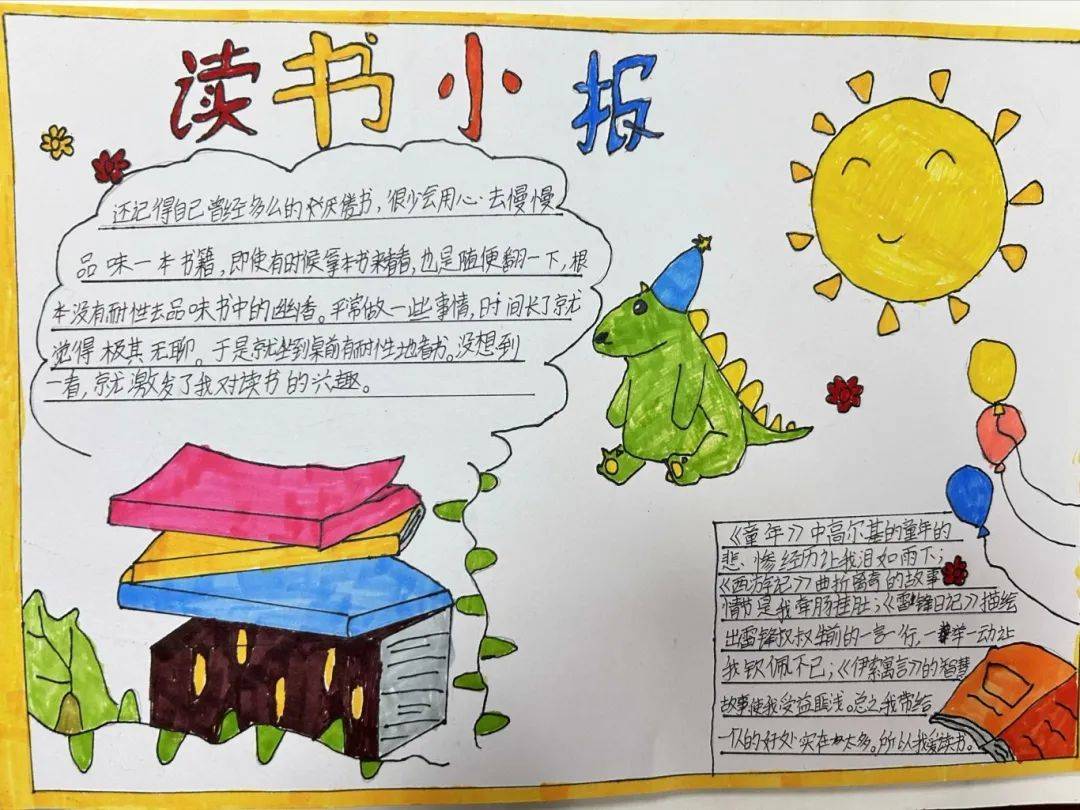 读书小报
还记得自己曾经多么的讨厌倦书，很少会用心去慢慢
品味一本书籍，即使有时候拿本书来看看，也是随便翻一下，根
本没有耐性去品味书中的幽香。平常做一些事情，时间长了就
觉得极其无聊。于是就坐到桌前有耐性地看书。没想到
一看，就激发了我对读书的兴趣。
《童年》中高尔基的童年的
悲惨经历让我泪如雨下；
《西游记》曲折离奇的故事
情节是我牵肠挂肚；《雷锋日记》描绘
出雷锋叔叔生前的一言一行，一举一动让
我钦佩不已；《伊索寓言》的智慧
故事使我受益匪浅。总之我带给
个人的好处实在太多。所以我爱读书。